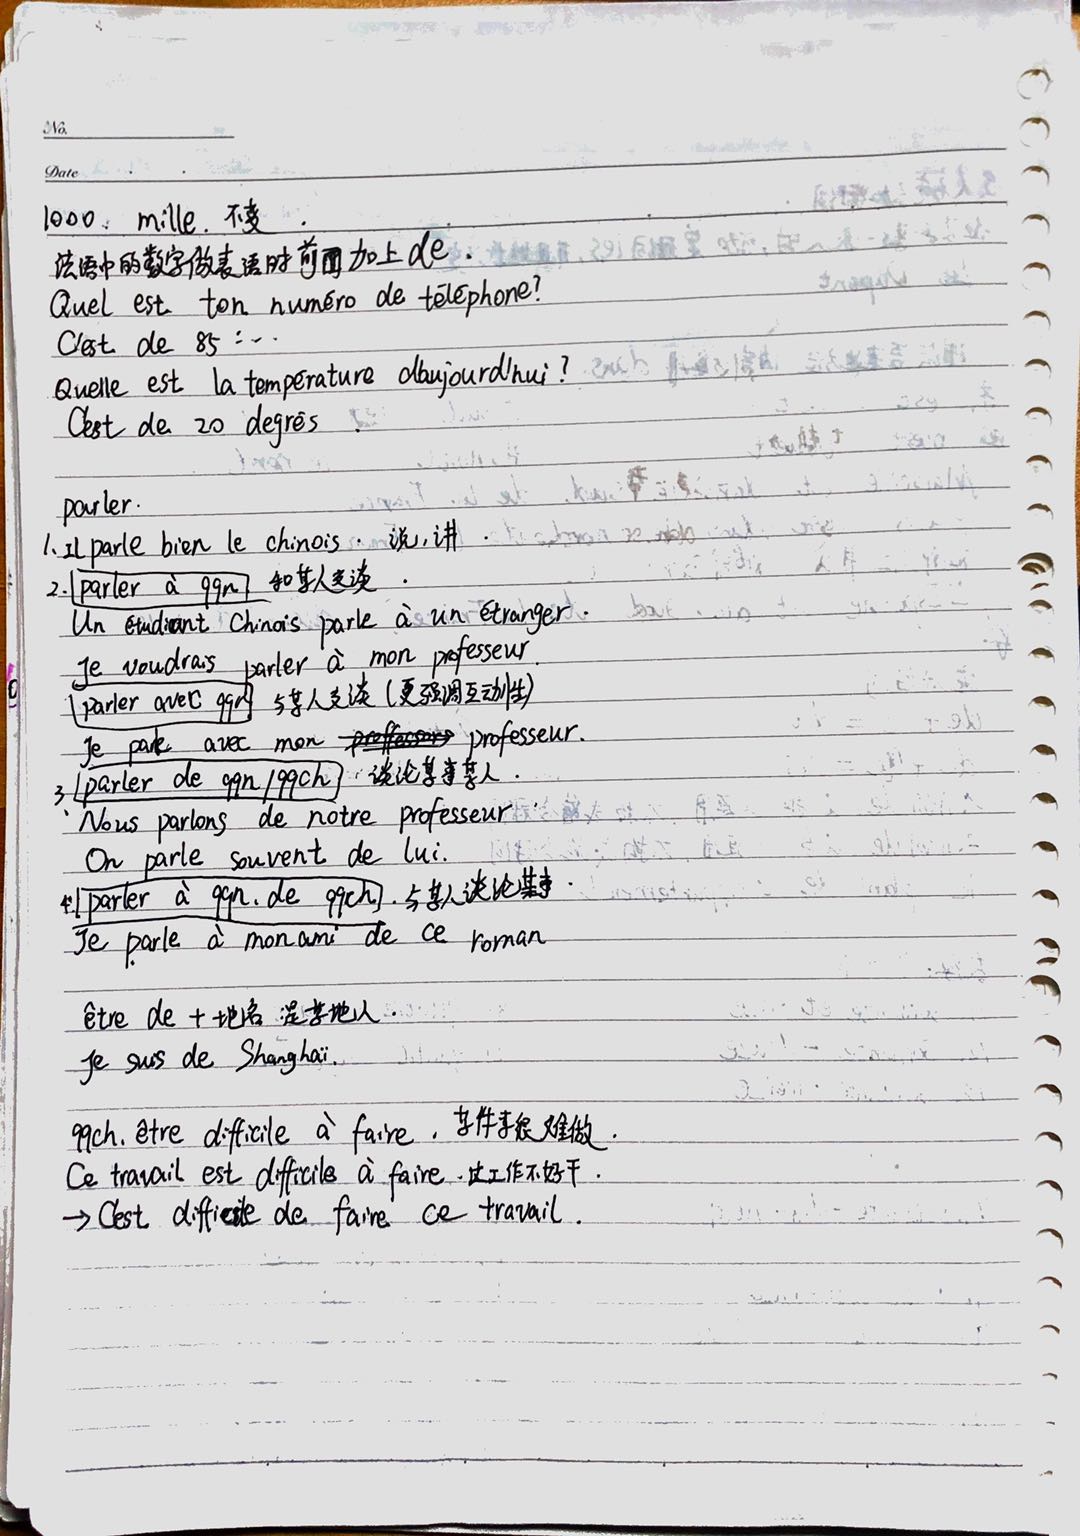 No.
Date
1000. mille. 不变.
法语中的数字做表语时前面加上de.
Quel est ton numéro de téléphone?
C'est de 85 ...
Quelle est la température d'aujourd'hui?
C'est de 20 degrés.
parler.
1. Il parle bien le chinois. 说,讲.
2. parler à qqn 和某人交谈.
Un étudiant Chinois parle à un étranger.
Je voudrais parler à mon professeur.
parler avec qqn 与某人交谈(更强调互动性)
Je parle avec mon professeur.
3. parler de qqn/qqch 谈论某事某人.
Nous parlons de notre professeur.
On parle souvent de lui.
4. parler à qqn. de qqch. 与某人谈论某事.
Je parle à mon ami de ce roman
être de + 地名 是某地人.
Je suis de Shanghaï.
qqch. être difficile à faire. 某件事很难做.
Ce travail est difficile à faire. 此工作不好干.
→ C'est difficile de faire ce travail.